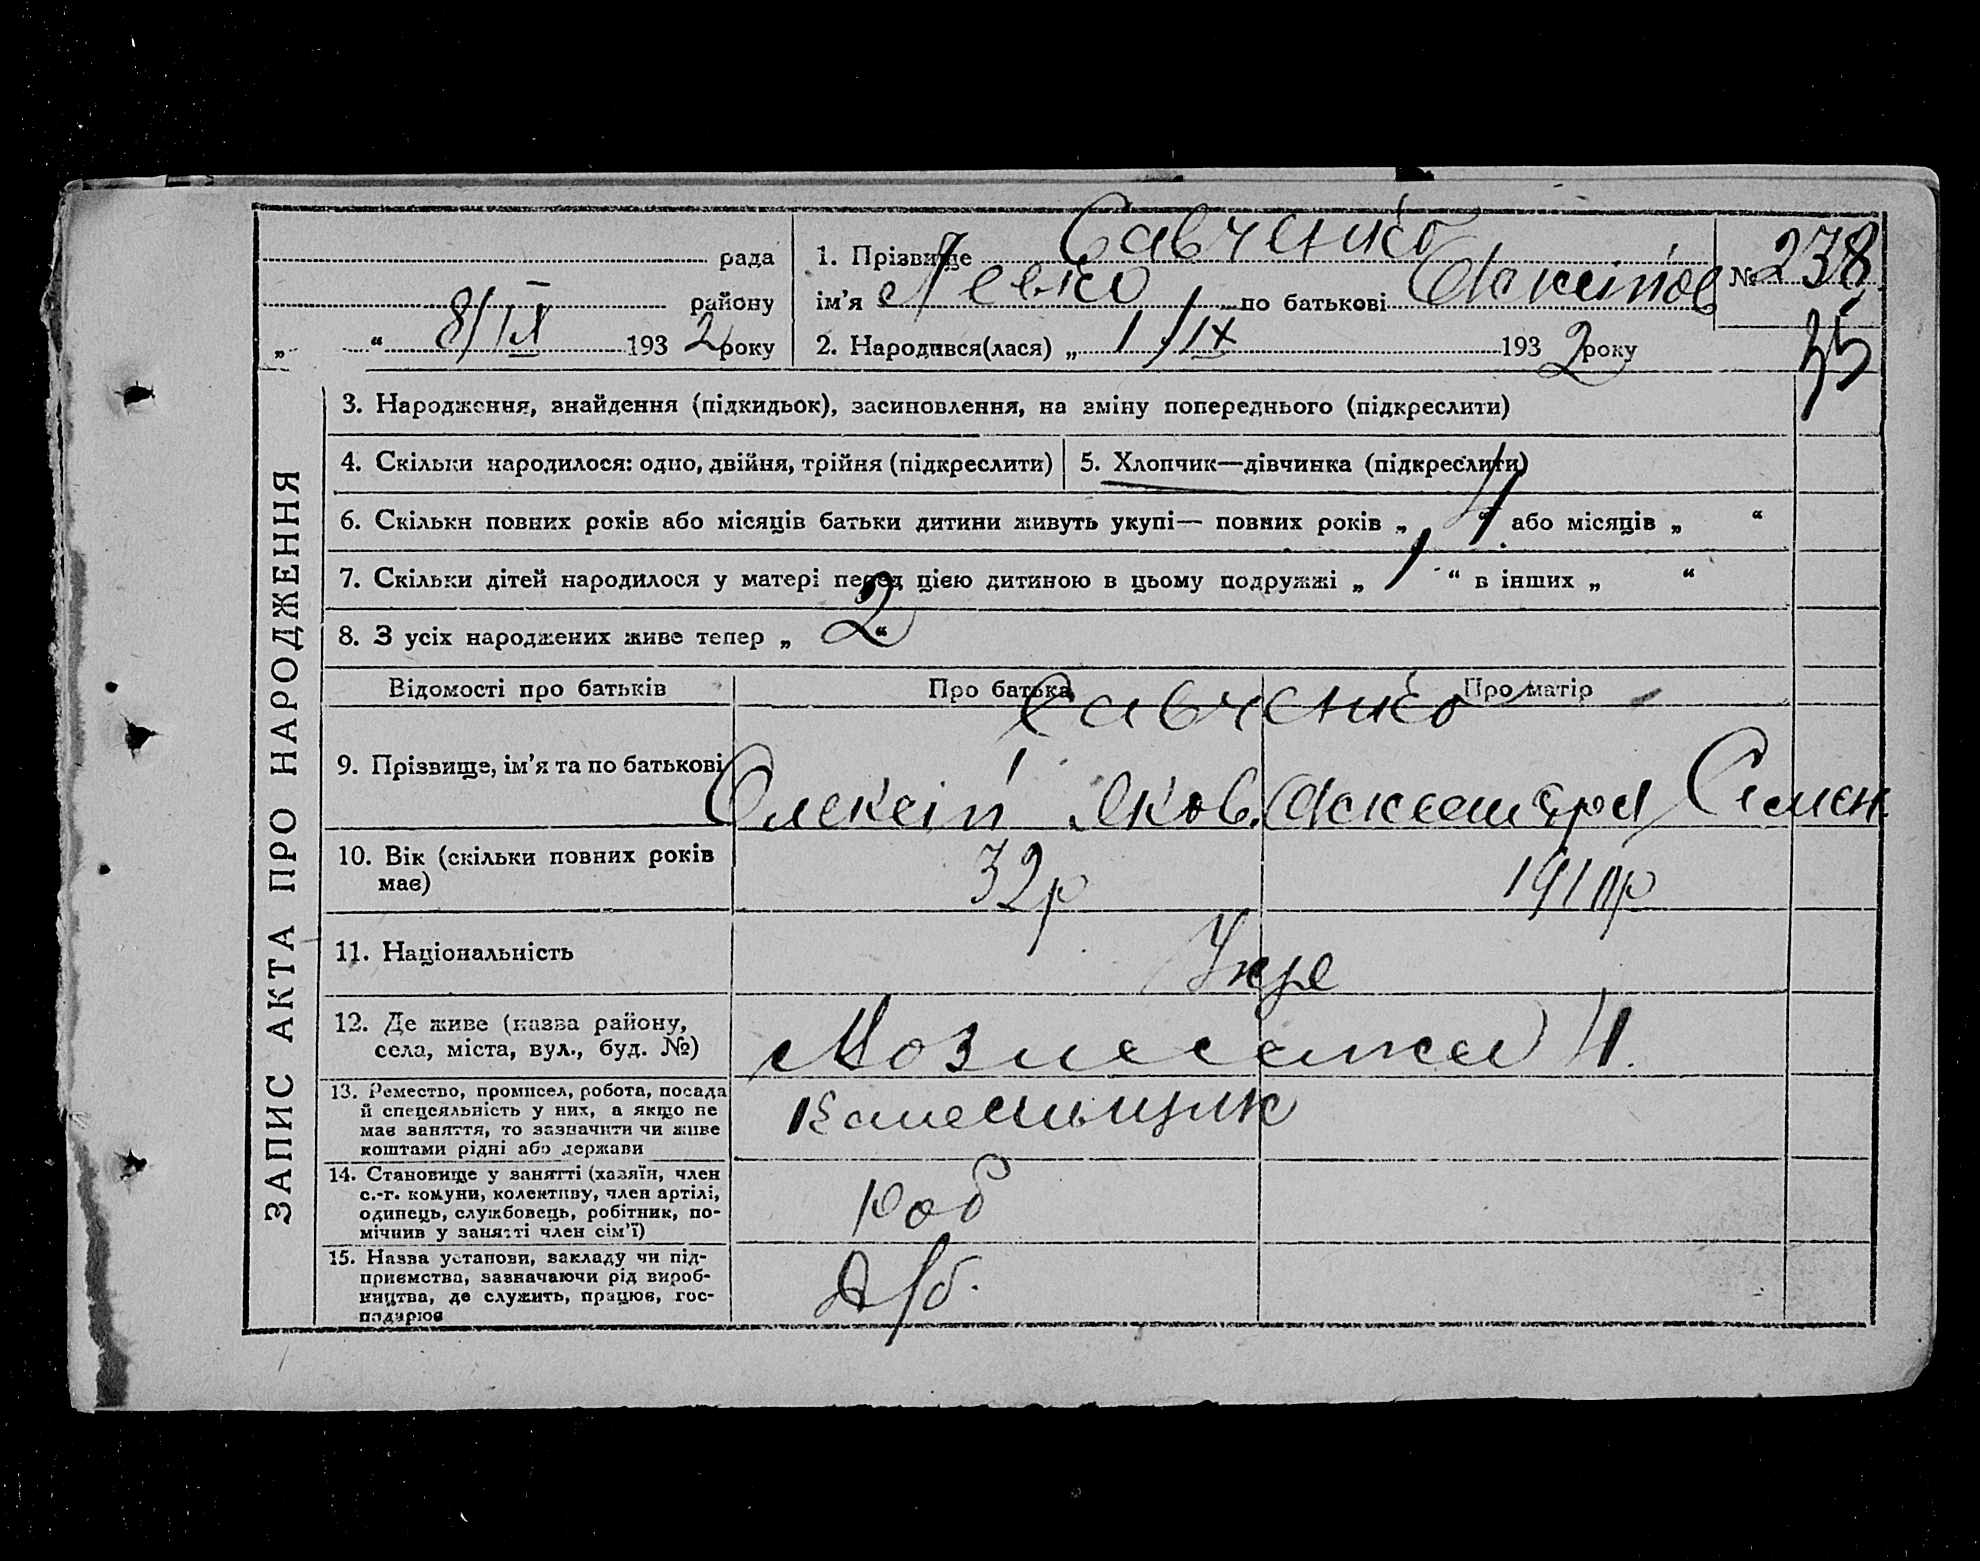 рада
району
„ “ 8/IX 1932 року
1. Прізвище Савченко
ім’я Левко по батькові
2. Народився(лася) „ 1/IX 1932 року
№ 238
35
ЗАПИС АКТА ПРО НАРОДЖЕННЯ
3. Народження, знайдення (підкидьок), засиновлення, на зміну попереднього (підкреслити)
4. Скільки народилося: одно, двійня, трійня (підкреслити)
5. Хлопчик—дівчинка (підкреслити)
6. Скільки повних років або місяців батьки дитини живуть укупі— повних років „ 4 “ або місяців „ “
7. Скільки дітей народилося у матері перед цією дитиною в цьому подружжі „ 1 “ в інших „ “
8. З усіх народжених живе тепер „ 2 “
Відомості про батьків
Про батька
Про матір
Савченко
9. Прізвище, ім’я та по батькові
Олексій Яков. Семен.
10. Вік (скільки повних років
має)
32р
11. Національність
Укр
12. Де живе (назва району,
села, міста, вул., буд. №)
13. Ремество, промисел, робота, посада
й спецсяльність у них, а якщо не
має заняття, то зазначити чи живе
коштами рідні або держави
14. Становище у занятті (хазяїн, член
с.-г. комуни, колективу, член артілі,
одинець, службовець, робітник, по-
мічнив у занятті член сім’ї)
роб
15. Назва установи, закладу чи під-
приємства, зазначаючи рід вироб-
ництва, де служить, працює, гос-
подарює